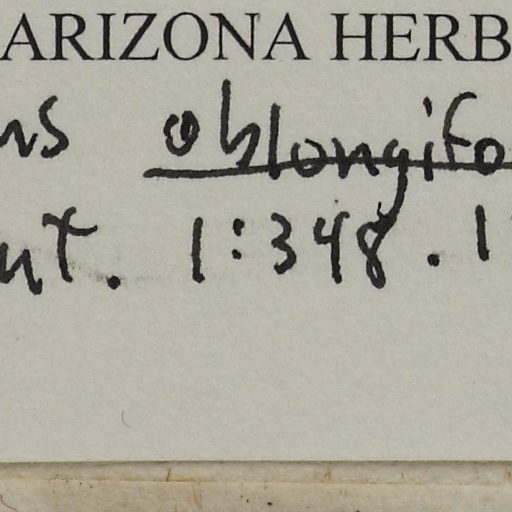 ARIZONA HERB
ns oblongifo
ut. 1:348. 1